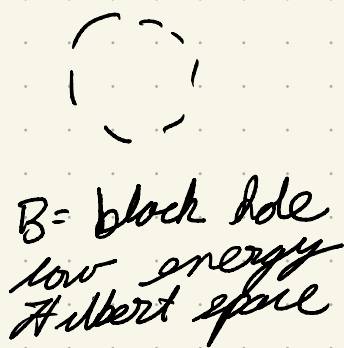 B= black hole
low energy
Hilbert space